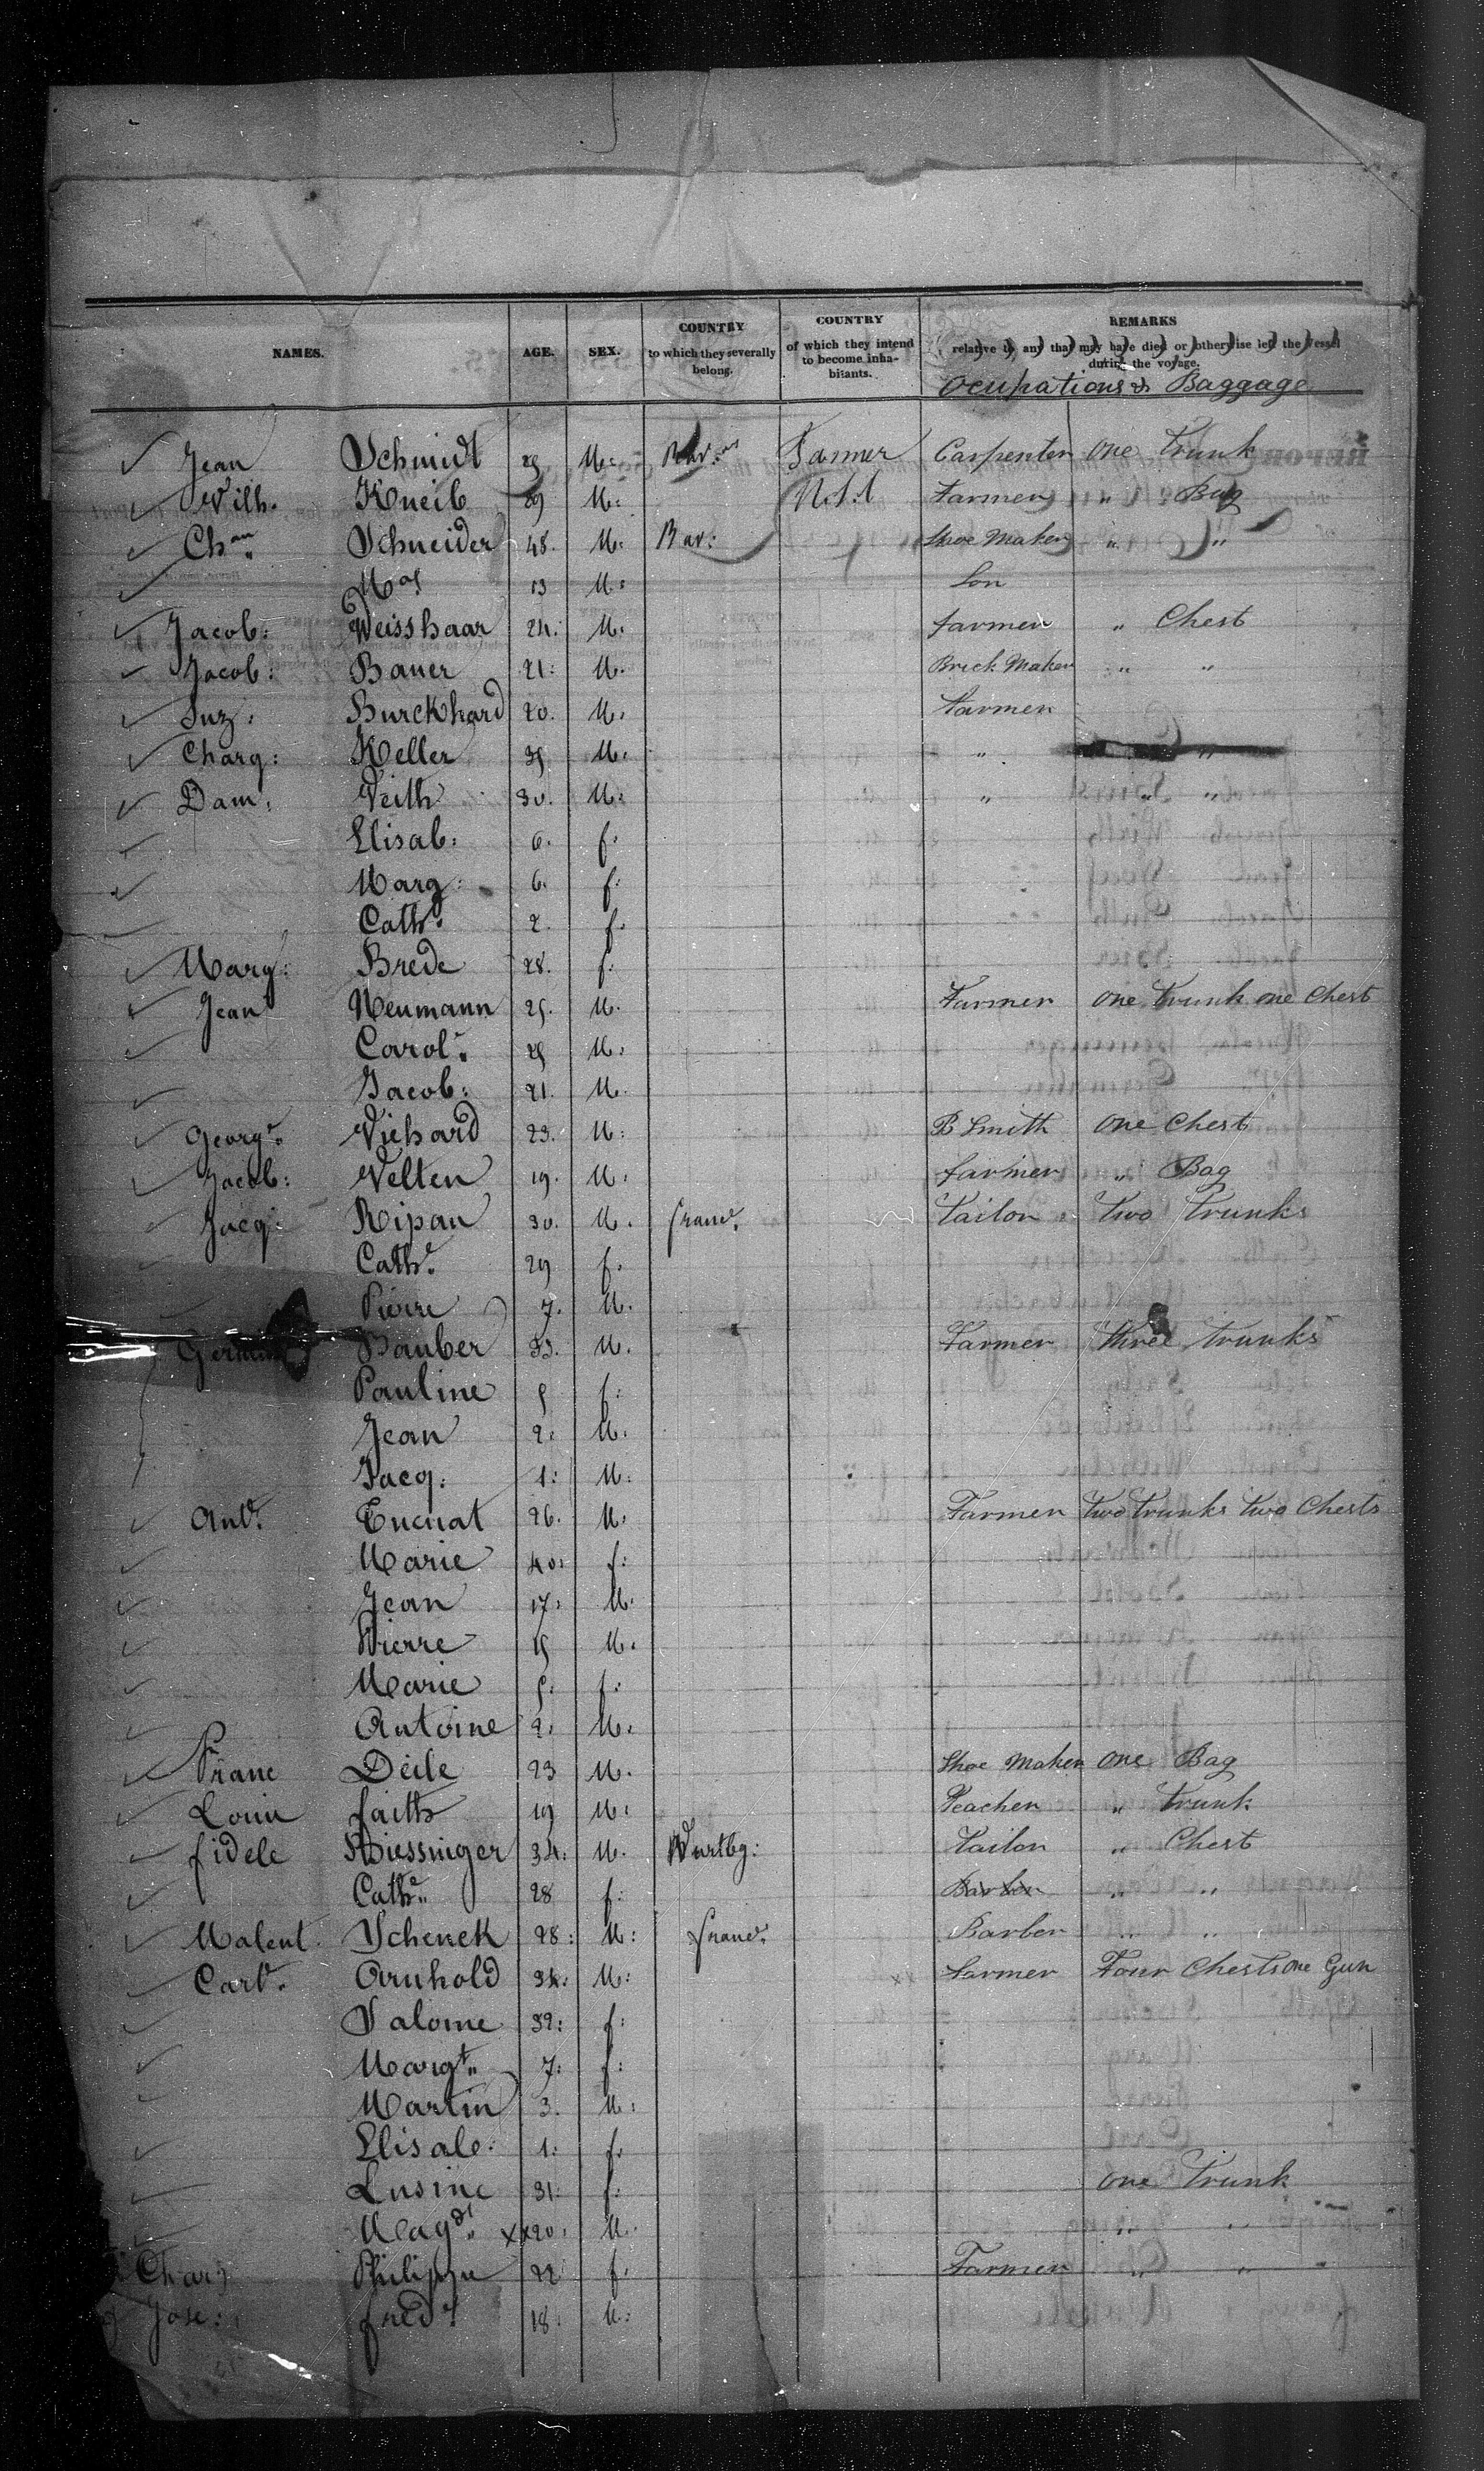 NAMES. AGE. SEX. COUNTRY to which they severally belong. COUNTRY of which they intend to become inhabitants. REMARKS relative to any that may have died or otherwise left the vessel during the voyage.
Ocupations & Baggage
Jean Schmidt 29 M: Bav: Carpenter one Trunk
Wilh. Kneib 29 M: Farmer " Bag
Chan. Schneider 48. M: Bav: Shoe Maker " "
13 M: Son
Jacob: Weisshaar 24. M. Farmer " Chest
Jacob: Bauer 21: M. Brick Maker " "
Burckhard 20. M. Farmer
Charg: Keller 35 M. " "
Dam: Veith 30. M. " " "
Elisab: 6. f.
Marg: 6. f.
Cath. 2. f.
Marg: Brede 28. f.
Jean Neumann 25. M. Farmer one Trunk one Chest
Carol. 25 M.
Jacob: 21. M.
Georg. Viehard 23. M: B Smith one Chest
Jacob: Velten 19. M. Farmer " Bag
Jacq: Ripan 30. M. france. Tailor two Trunks
Cathe. 29 f.
Pierre 7. M.
Bauber 33. M. Farmer three trunks
Pauline 5 f.
Jean 2: M.
Jacq: 1: M:
Ante. Tucuat 26. M. Farmer two trunks two Chests
Marie 40: f.
Jean 17: M.
Pierre 15 M.
Marie 5: f.
Antoine 2. M.
Franc Deile 23 M. Shoe Maker one Bag
Louis faith 19 M: Teacher " Trunk
fidele Riessinger 34: M. Wurtbg: Tailor " Chest
Cathe. 28 f. Barber " "
Valent Schenck 28: M: france. Barber " "
Arnhold 34: M: xx Farmer Four Chests one Gun
Salome 32: f:
Margt. 7: f:
Martin 3. M:
Elisab: 1: f.
Lusine 31: f. one Trunk
Magd. xx20. M.
Char Philippe 22 f. Farmer " "
Jose: fred. 18. M: